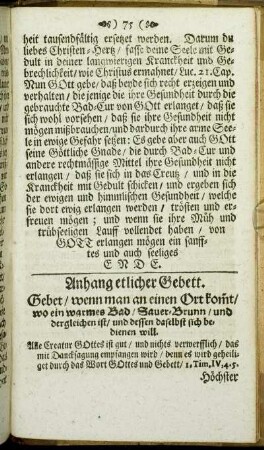 ) 75 (
heit tausendfältig ersetzet werden. Darum du
liebes Christen-Hertz / fasse deine Seele mit Ge-
dult in deiner langwierigen Kranckheit und Ge-
brechlichkeit / wie Christus ermahnet / Luc. 21. Cap.
Nun GOtt gebe / daß beyde sich recht erzeigen und
verhalten / die jenige die ihre Gesundheit durch die
gebrauchte Bad-Cur von GOtt erlanget / daß sie
sich wohl vorsehen / daß sie ihre Gesundheit nicht
mögen mißbrauchen / und dardurch ihre arme See-
le in ewige Gefahr setzen: Es gebe aber auch GOtt
seine Göttliche Gnade / die durch Bad-Cur und
andere rechtmässige Mittel ihre Gesundheit nicht
erlangen / daß sie sich in das Creutz / und in die
Kranckheit mit Gedult schicken / und ergeben sich
der ewigen und himmlischen Gesundheit / welche
sie dort ewig erlangen werden / trösten und er-
freuen mögen; und wenn sie ihre Müh und
trübseeligen Lauff vollendet haben / von
GOTT erlangen mögen ein sanff-
tes und auch seeliges
E N D E.
Anhang etlicher Gebett.
Gebet / wenn man an einen Ort kom̃t /
wo ein warmes Bad / Sauer-Brunn / und
dergleichen ist / und dessen daselbst sich be-
dienen will.
Alle Creatur GOttes ist gut / und nichts verwerfflich / das
mit Dancksagung empfangen wird / denn es wird geheili-
get durch das Wort GOttes und Gebett / 1. Tim. IV, 4. 5.
Höchster